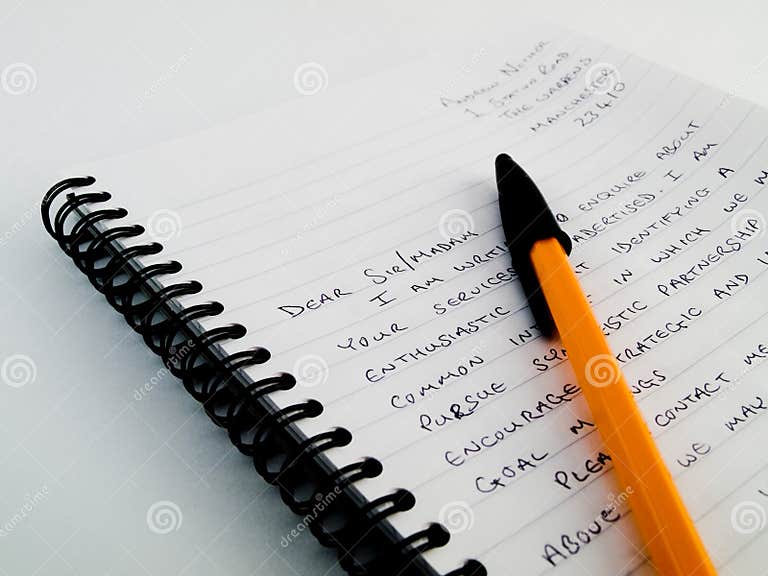 ANDREW
1 STATUS ROAD
THE WARRENS
MANCHESTER
23.4.10
DEAR SIR/MADAM
I AM TO ENQUIRE ABOUT
YOUR SERVICES ADERTISED. I AM
ENTHUSIASTIC IDENTIFYING A
COMMON IN WHICH WE
PURSUE PARTNERSHIP
ENCOURAGE STRATEGIC AND
GOAL
CONTACT ME
ABOVE WE MAY